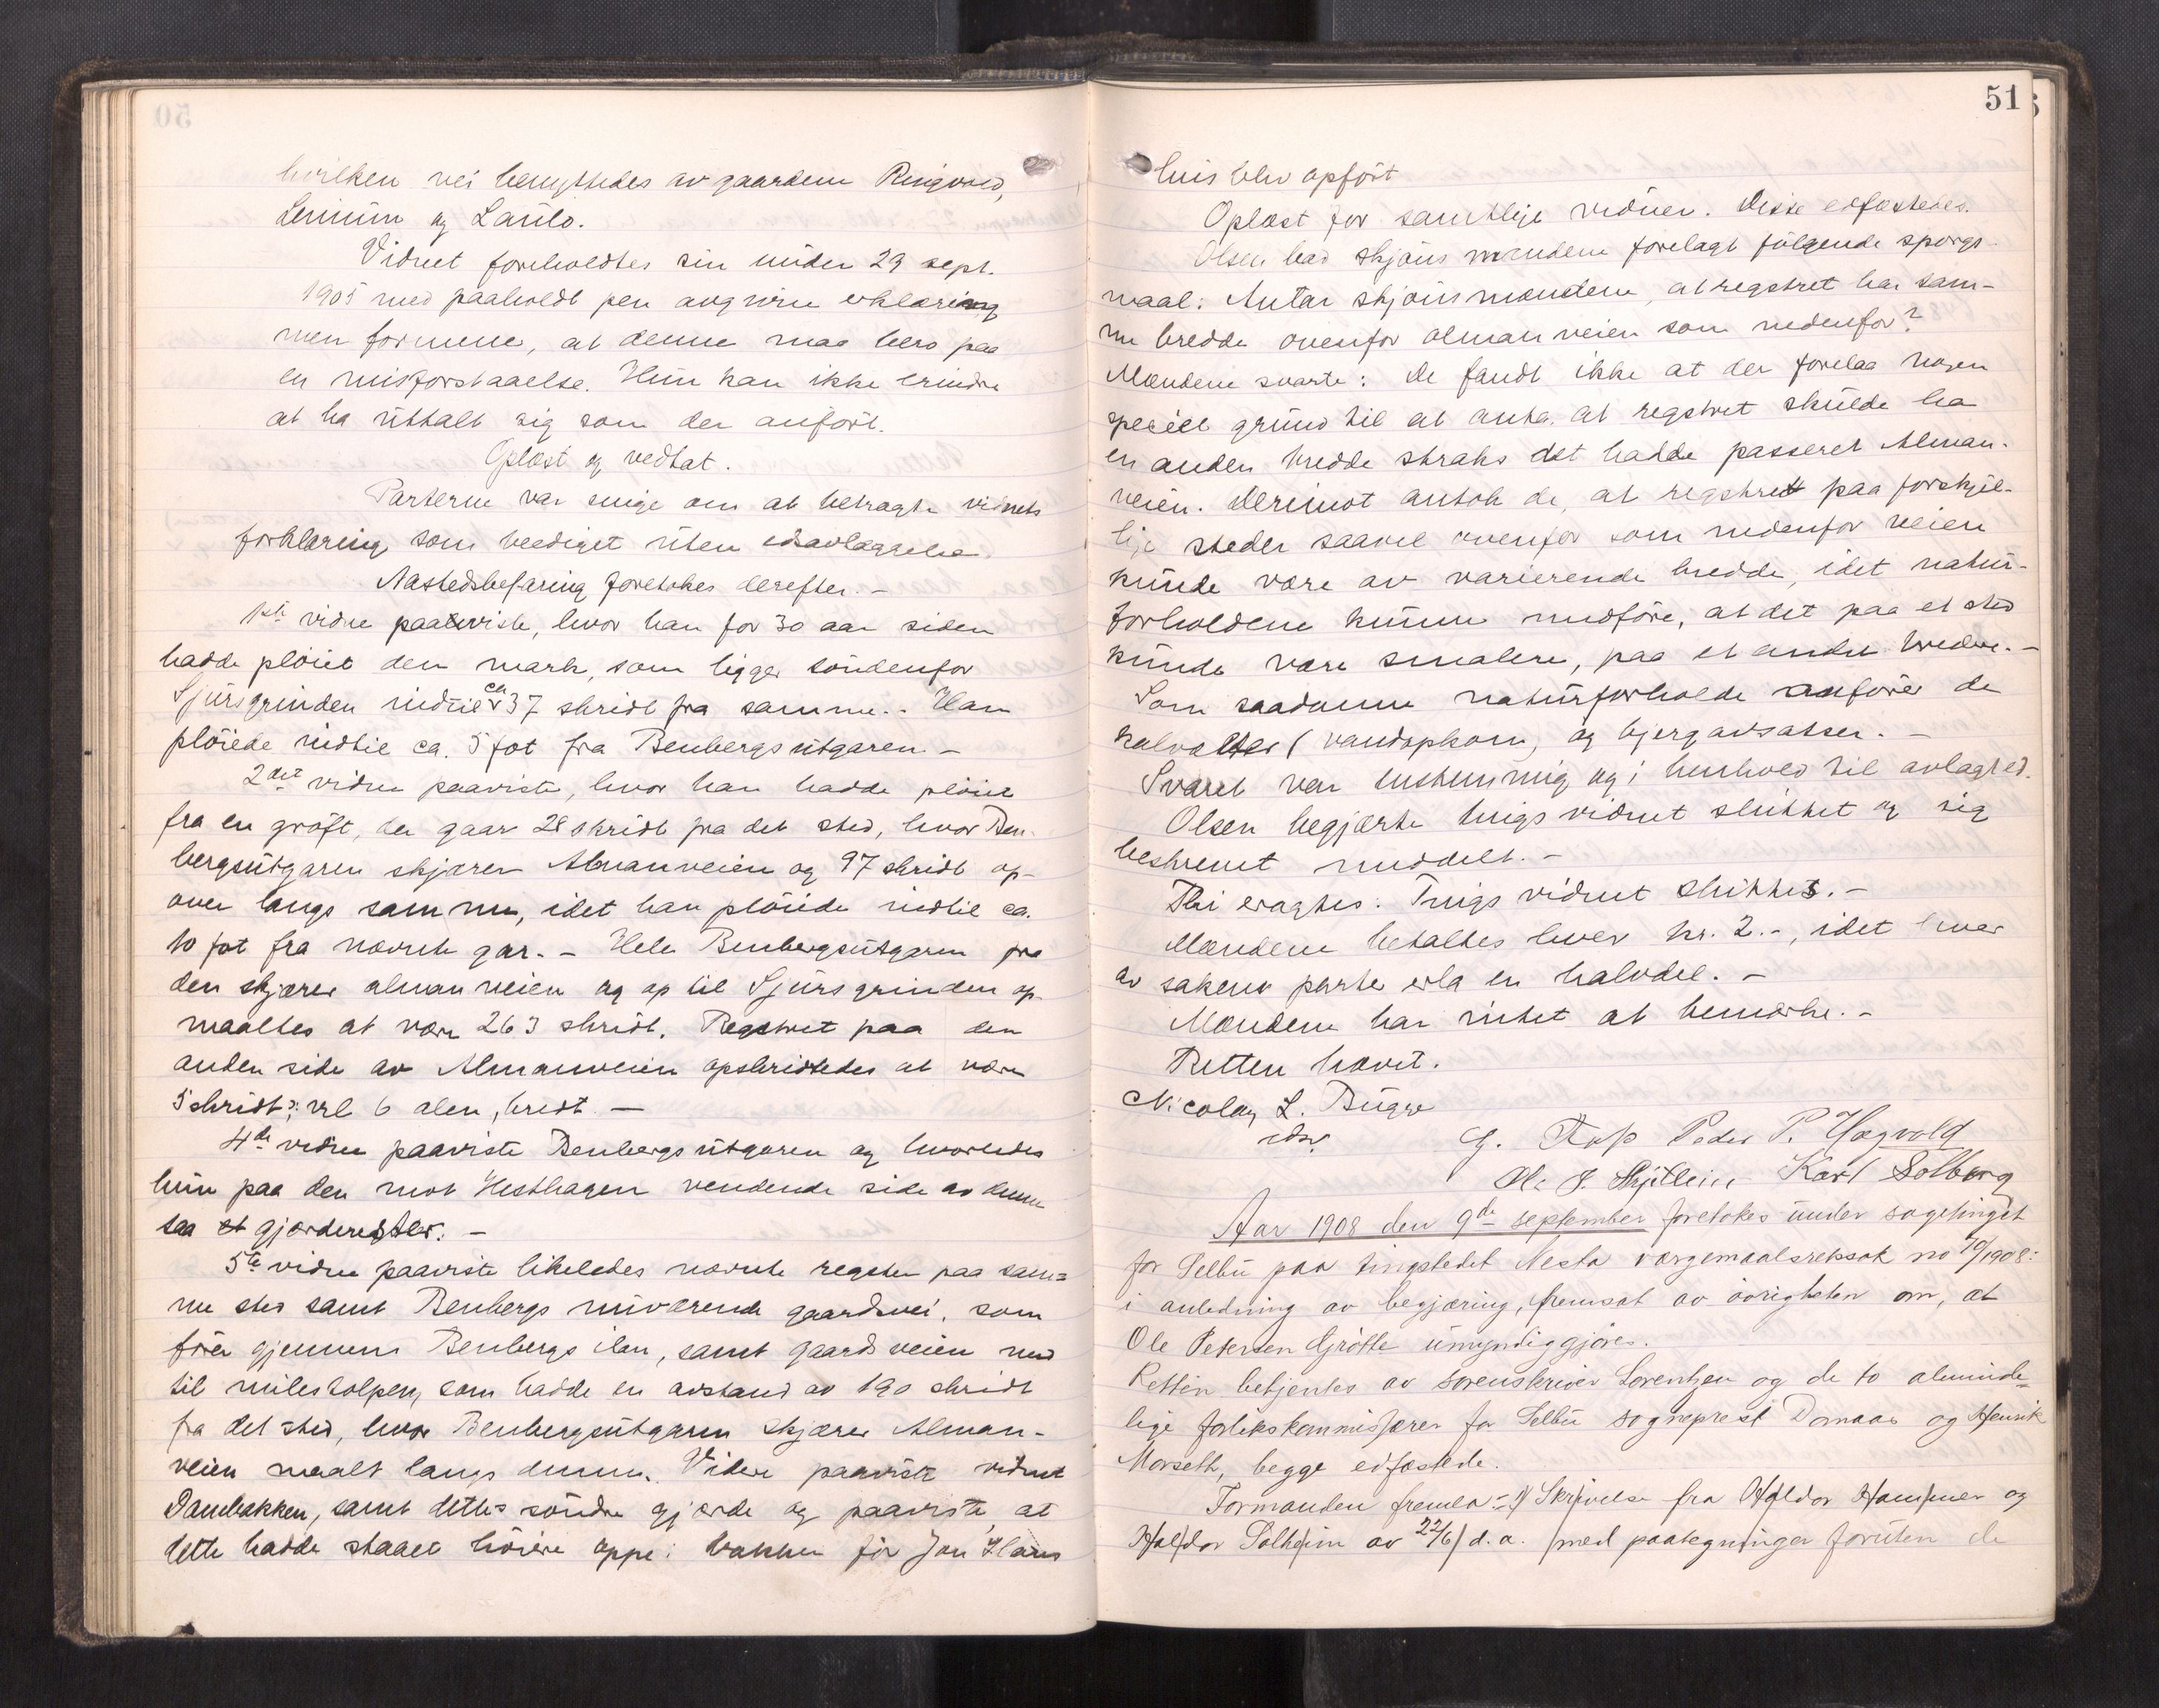 hvilken vei benyttedes av gaardene Ringvold,
Lennum og Laulo.
Vidnet foreholdtes sin under 29 sept.
1905 med paaholdt pen avgivne erklæring
men formene, at denne maa bero paa
en misforstaaelse. Hun kan ikke erindre
at ha uttalt sig som der anført.
Oplæst og vedtat.
Parterne var enige om at betragte vidnets
forklaring som beediget uten edsavlæggelse.
Aastedsbefaring foretokes derefter. –
1ste vidne paaviste, hvor han for 30 aar siden
hadde pløiet den mark, som ligger søndenfor
Sjursgrinden indtil ca 37 skridt fra samme. – Han
pløiede indtil ca. 5 fot fra Benbergsutgaren. –
2det vidne paaviste, hvor han hadde pløiet
fra en grøft, der gaar 28 skridt fra det sted, hvor Ben-
bergsutgaren skjærer Almanveien og 97 skridt op-
over langs samme, idet han pløiede indtil ca.
10 fot fra nævnte gar. – Hele Benbergsutgaren fra
den skjærer almanveien og op til Sjursgrinden op-
maaltes at være 263 skridt. Regstret paa den
anden side av Almanveien opskridtedes at være
5 skridt ɔ: vel 6 alen, bredt. –
4de vidne paaviste Benbergsutgaren og hvorledes
hun paa den mot Hesthagen vendende side av denne
saa et gjærderester. –
5te vidne paaviste likeledes nævnte regster paa sam=
me sted samt Benbergs nuværende gaardsvei, som
fører gjennem Benbergs ilen, samt gaardsveien ned
til milestolpen, som hadde en avstand av 190 skridt
fra det sted, hvor Benbergsutgaren skjærer Alman-
veien maalt langs denne. Videre paaviste vidnet
Dambakken, samt dettes søndre gjærde og paaviste, at
dette hadde staaet høiere oppe i bakken før Jon Hans
51
hus blev opført
Oplæst for samtlige vidner. Disse edfæstedes.
Olsen bad skjønsmændene forelagt følgende spørgs-
maal: Antar skjønsmændene, at regstret har sam-
me bredde ovenfor almanveien som nedenfor?
Mændene svarte: De fandt ikke at der forelaa nogen
speciel grund til at anta, at regstret skulde ha
en anden bredde straks det hadde passeret Alman-
veien. Derimot antok de, at regstret paa forskjel-
lige steder saavel ovenfor som nedenfor veien
kunde være av varierende bredde, idet natur-
forholdene kunne medføre, at det paa et sted
kunde være smalere, paa et andet bredere. –
Som saadanne naturforholde anfører de
kvaler (vandopkom) og bjergavsatser. –
Svaret var enstemmig og i henhold til avlagt ed.
Olsen begjærte tingsvidnet sluttet og sig
beskrevet meddelt. –
Thi eragtes: Tingsvidnet sluttes. –
Mændene betaltes hver kr. 2.–, idet hver
av sakens parter erla en halvdel. –
Mændene har intet at bemerke. –
Retten hævet.
Nicolay L. Bugge
edsv.
G. Rup Peder P. Hagvold
Ole J. Kjøllein Karl Solberg
Aar 1908 den 9de september foretokes under sagetinget
for Selbu paa tingstedet Nesta værgemaalsretssak no 10/1908:
i anledning av begjæring, fremsat av øvrigheten om, at
Ole Petersen Grøtte umyndiggjøres.
Retten betjentes av sorenskriver Lorentzen og de to alminde=
lige forlikskommissærer for Selbu sogneprest Domaas og Henrik
Morseth, begge edfæstede.
Formanden fremla: 1) Skrivelse fra Haldor Hammer og
Haldor Solheim av 22/6 d. a. med paategninger foruten de